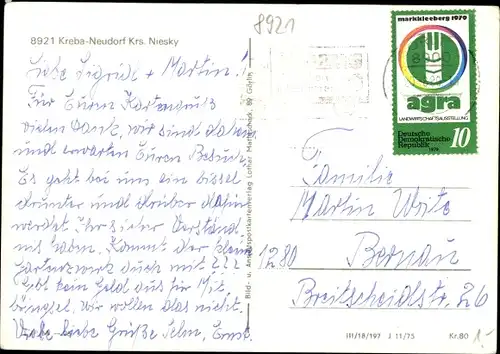 8921
8921 Kreba-Neudorf Krs. Niesky
Liebe Sigrid + Martin!
Für Euren Kartengruß
vielen Dank, wir sind daheim
und erwarten Euren Besuch.
Es geht bei uns ein bissel
drunter und drüber dafür
werdet Ihr sicher Verständ
nis haben. Kommt der kleine
Gartenzwerg auch mit???
Gebt kein Geld aus für Mit-
bringsel. Wir wollen das nicht.
liebe Grüße Ernst.
Bild- u. Ansichtspostkartenverlag Lothar
markkleeberg 1979
agra
LANDWIRTSCHAFTSAUSSTELLUNG
Deutsche
Demokratische
Republik 10
1979
Familie
Martin
1280 Bernau
Breitscheidstr. 26
III/18/197 J 11/75 Kr.80
1.-